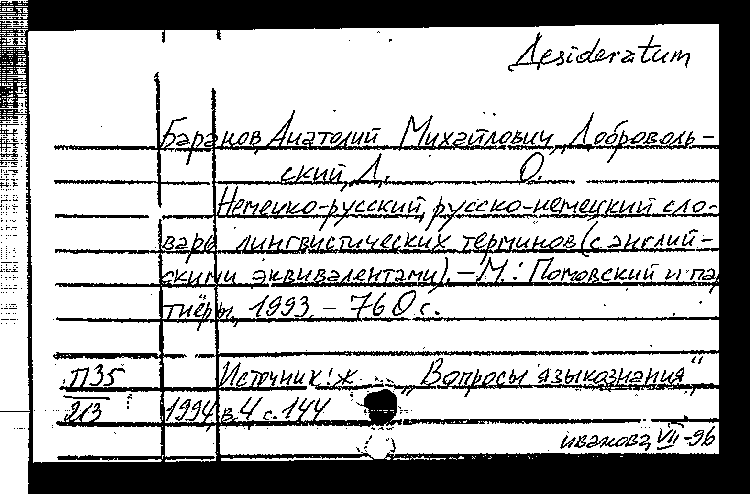 Desideratum
Баранов, Анатолий Михайлович, Доброволь-
ский, Д. О.
Немецко-русский, русско-немецкий сло-
варь лингвистических терминов (с англий-
скими эквивалентами). – М.: Помовский и пар
тнёры, 1993. – 760 с.
П35 Источник: ж „Вопросы языкознания",
213 1994, в.4, с. 144
иванова, VII-96